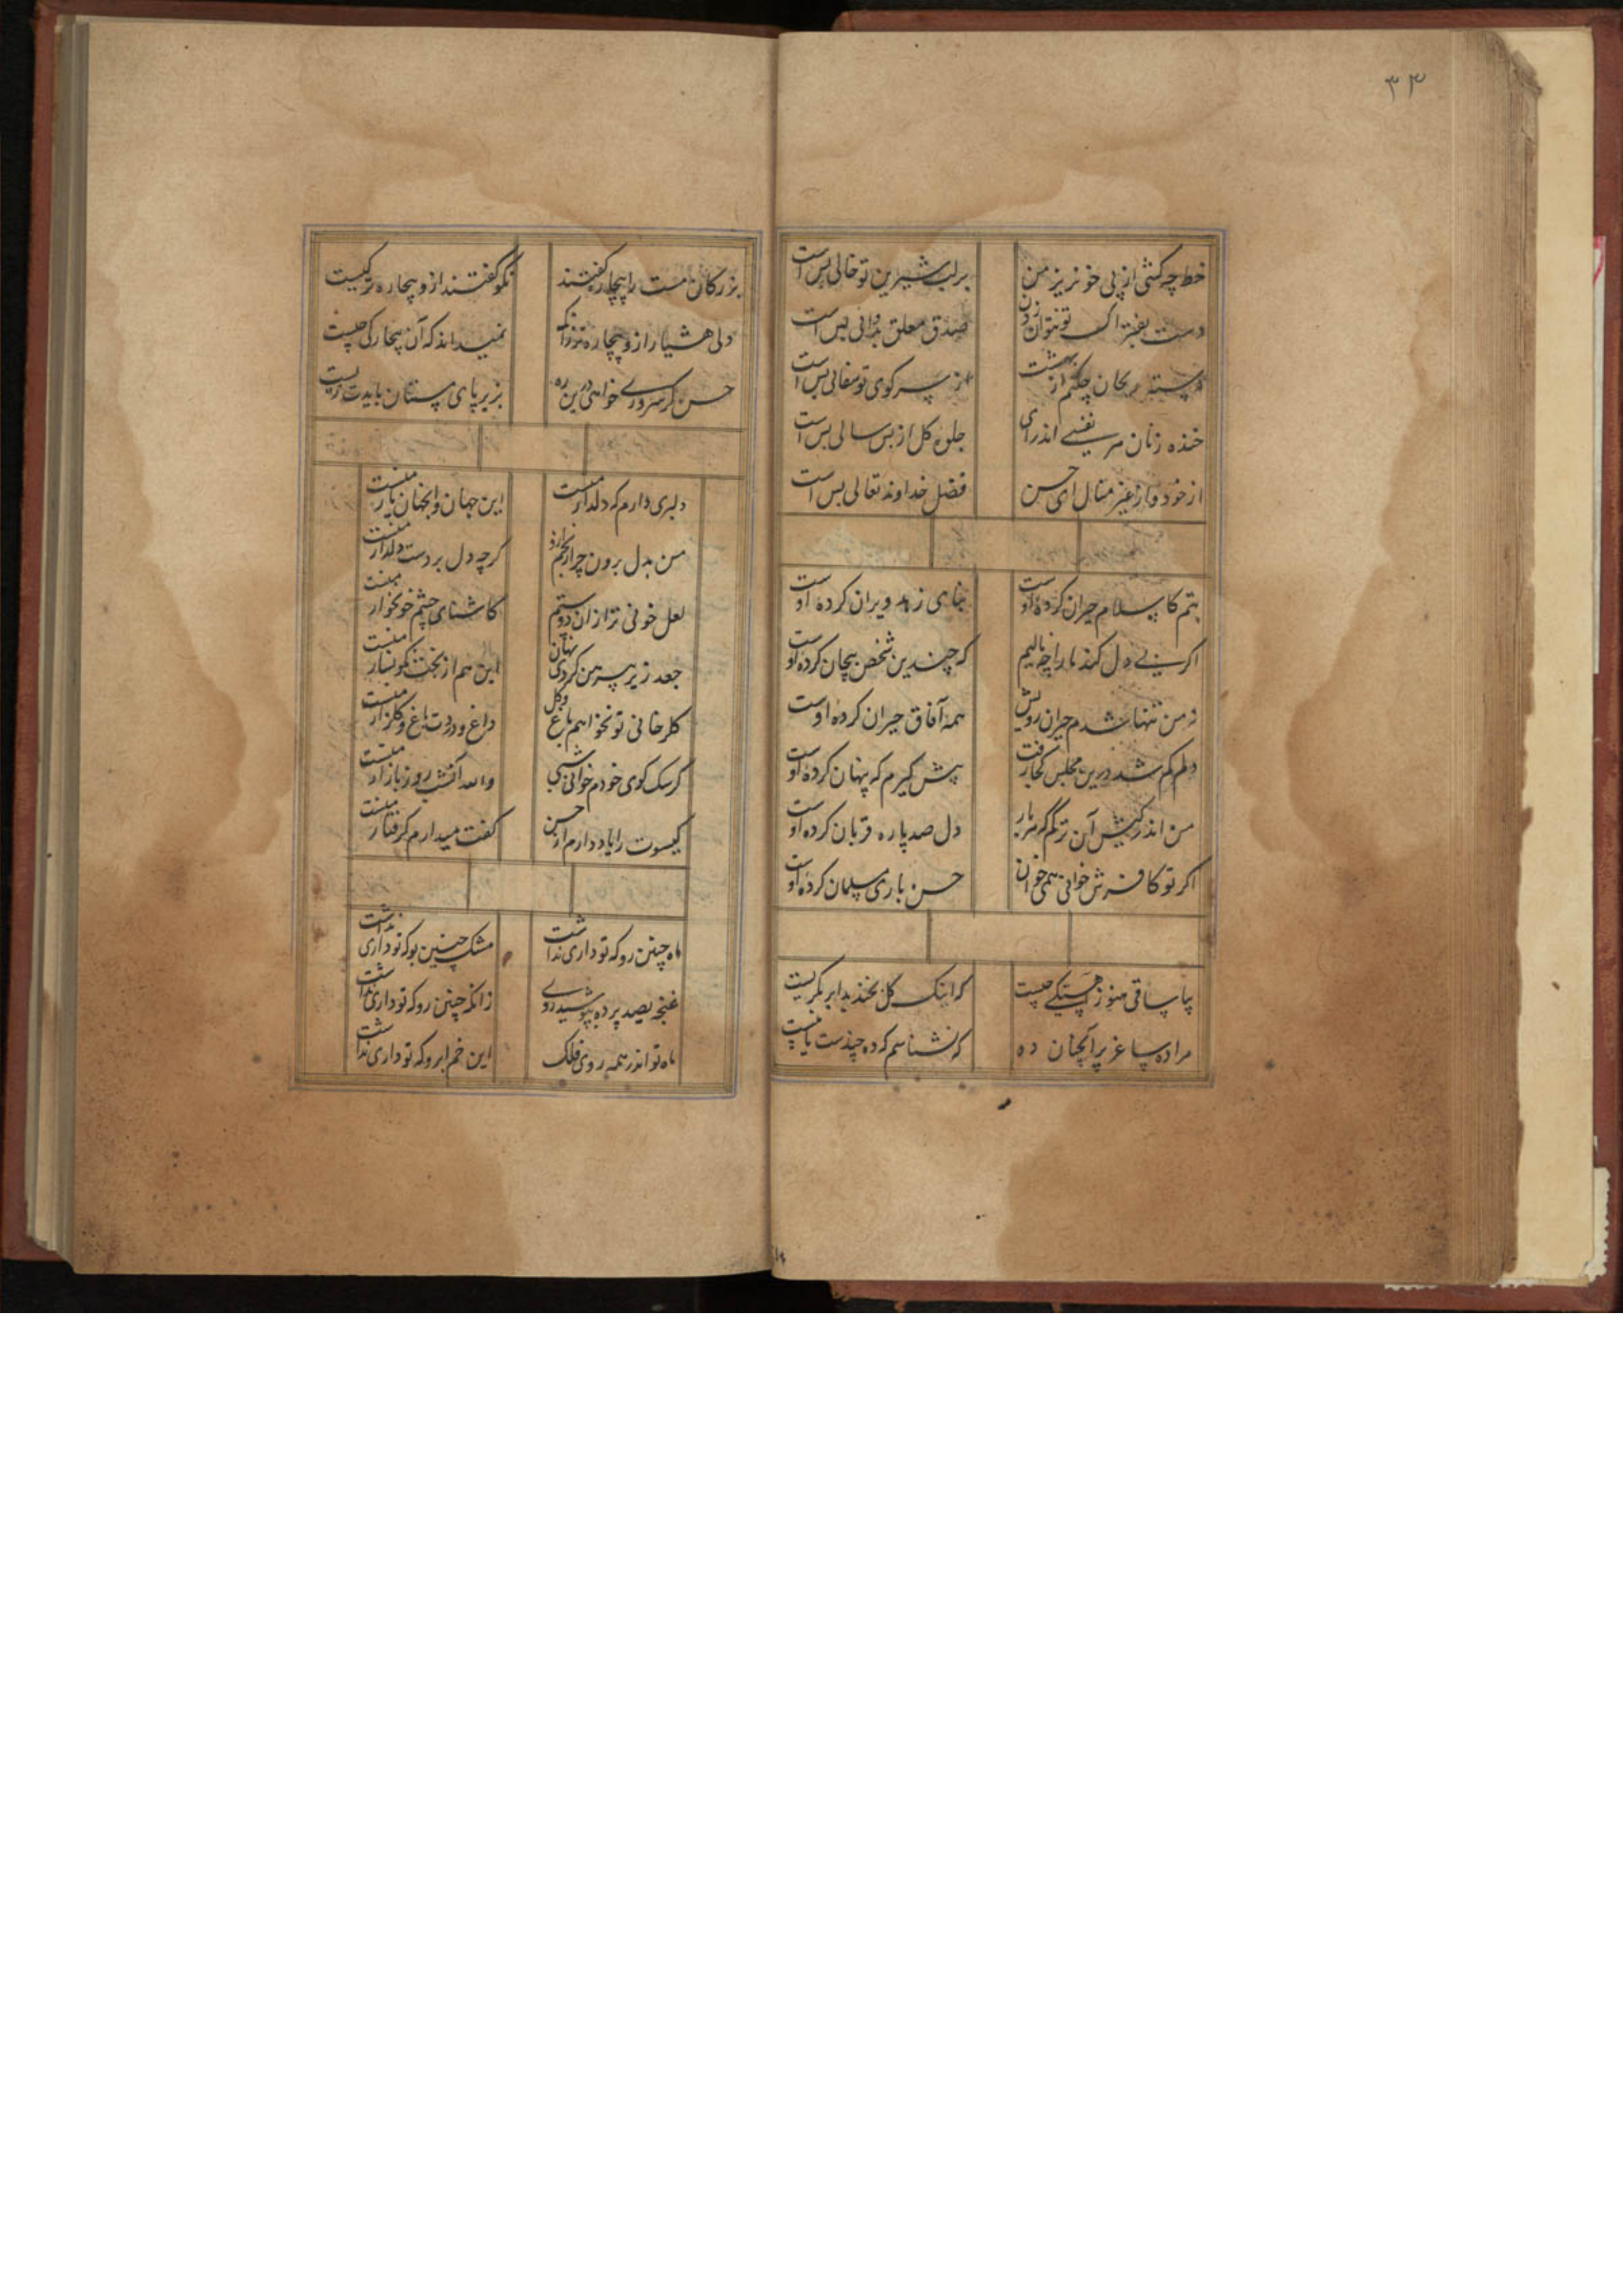 ۳۳
خط چه کشی از پی خونریز من
بر لب شیرین تو خالی بس است
دست بفتراک تو نتوان زدن
صدق معلق بدوالی بس است
دسته ریحان چکنم از بهشت
از سر کوی تو سفالی بس است
خنده زنان هر نفسی اندرآی
جلوه کل از پس سالی بس است
از خود و از غیر منال ای حسن
فضل خداوند تعالی بس است
بتم کاسلام حیران کرده اوست
بنای زهد ویران کرده اوست
اگر بی دل کند ما را چه نالیم
که چندین شخص بیجان کرده اوست
نه من تنها شدم حیران رویش
همه آفاق حیران کرده اوست
دلم گم شد درین مجلس کجا رفت
پیش گیرم که پنهان کرده اوست
من اندر کیش آن ترکم که هر بار
دل صد پاره قربان کرده اوست
اکر تو کافرش خوانی همی خوان
حسن باری مسلمان کرده اوست
بیا ساقی هنوز آهستکی چیست
که اینک کل بخندید ابر بکریست
مرا ده ساغر پر آنچنان ده
که نشناسم که ده چندست یا بیست
بزرکان مست را بیچاره کفتند
نکو کفتند ازو بیچاره تر کیست
ولی هشیار ازو بیچاره تر زانک
نمیداند که آن بیچارکی چیست
حسن کر سروری خواهی درین ره
بزیر پای مستان بایدت زیست
دلبری دارم که دلدار منست
این جهان و انجهان یار منست
من بدل بردن چرا رنجم ازو
کرچه دل بردست دلدار منست
لعل خونی تر ازان دو ستم
کاشنای چشم خونخوار منست
جعد زیر پیرهن کردی نهان
این هم از بخت نکونسار منست
کلرخا بی تو نخواهم باغ و کل
داغ و دردت باغ و کلزار منست
کر سک کوی خودم خوانی شبی
والله آنشب روز بازار منست
کیسوت را یاد دارم از حسن
کفت میدارم کرفتار منست
ماه چنین رو که تو داری نداشت
مشک چنین بو که تو داری نداشت
غنچه بصد پرده بپوشید روی
زانکه چنین رو که تو داری نداشت
ماه تو اندر همه روی فلک
این خم ابرو که تو داری نداشت